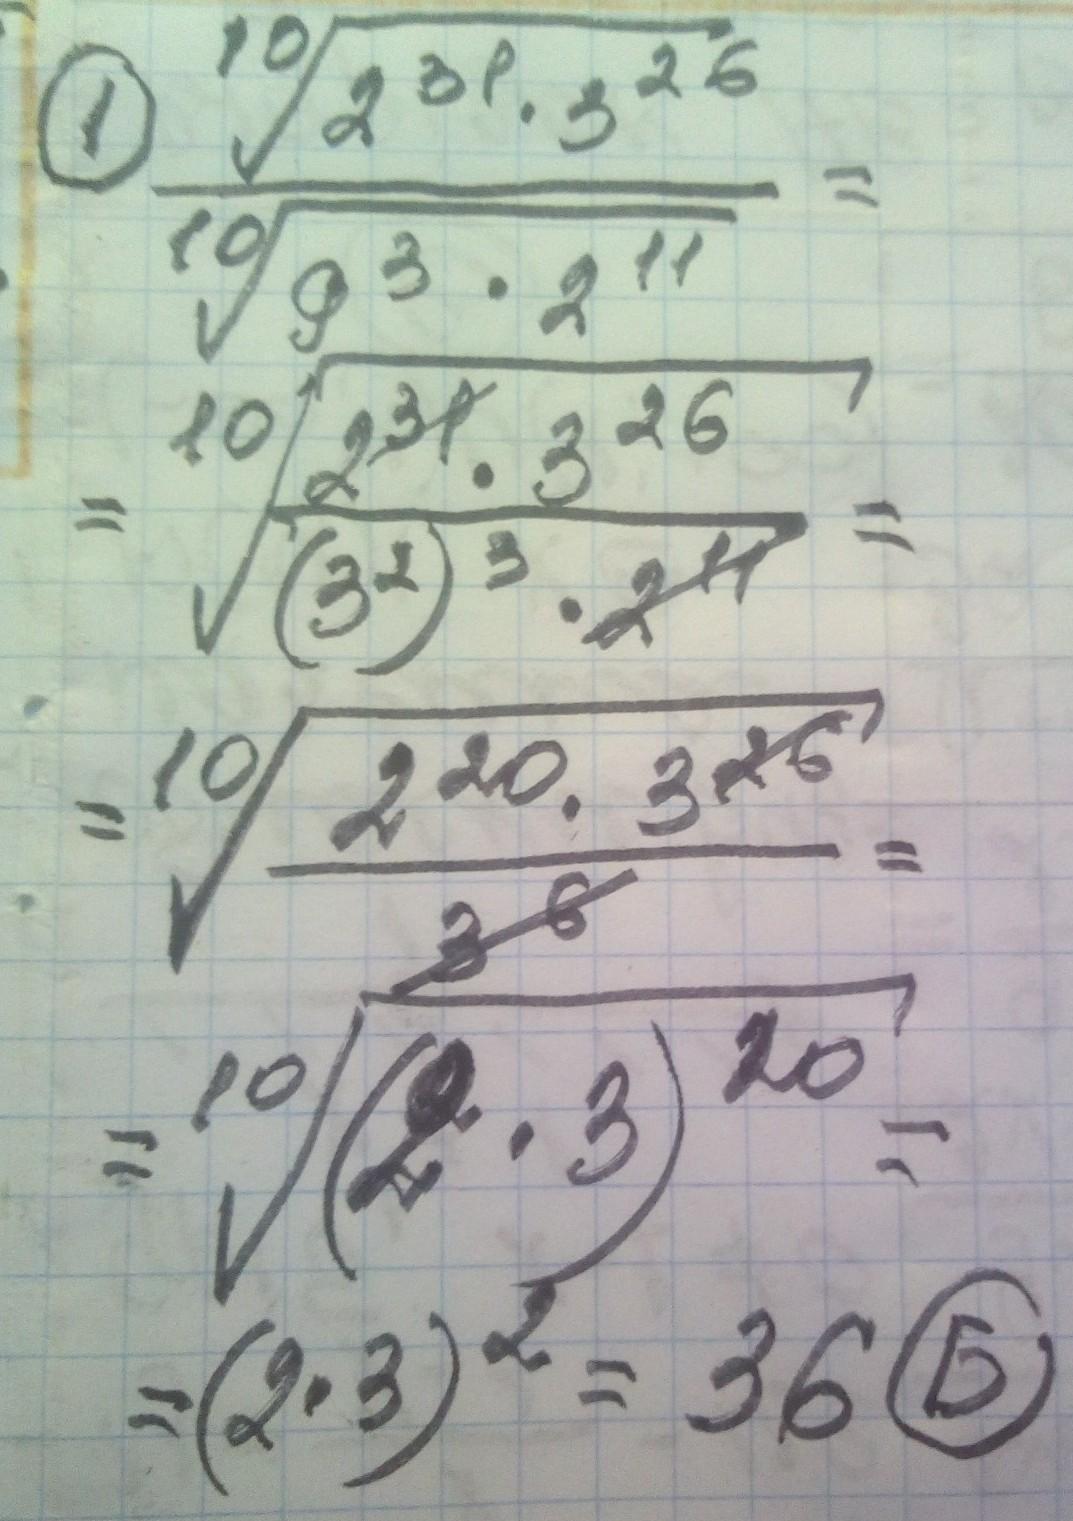 ① \frac{\sqrt[10]{2^{31} \cdot 3^{26}}}{\sqrt[10]{9^3 \cdot 2^{11}}} =
= \sqrt[10]{\frac{2^{31} \cdot 3^{26}}{(3^2)^3 \cdot 2^{11}}} =
= \sqrt[10]{\frac{2^{20} \cdot 3^{26}}{3^6}} =
= \sqrt[10]{(2 \cdot 3)^{20}} =
= (2 \cdot 3)^2 = 36 Б